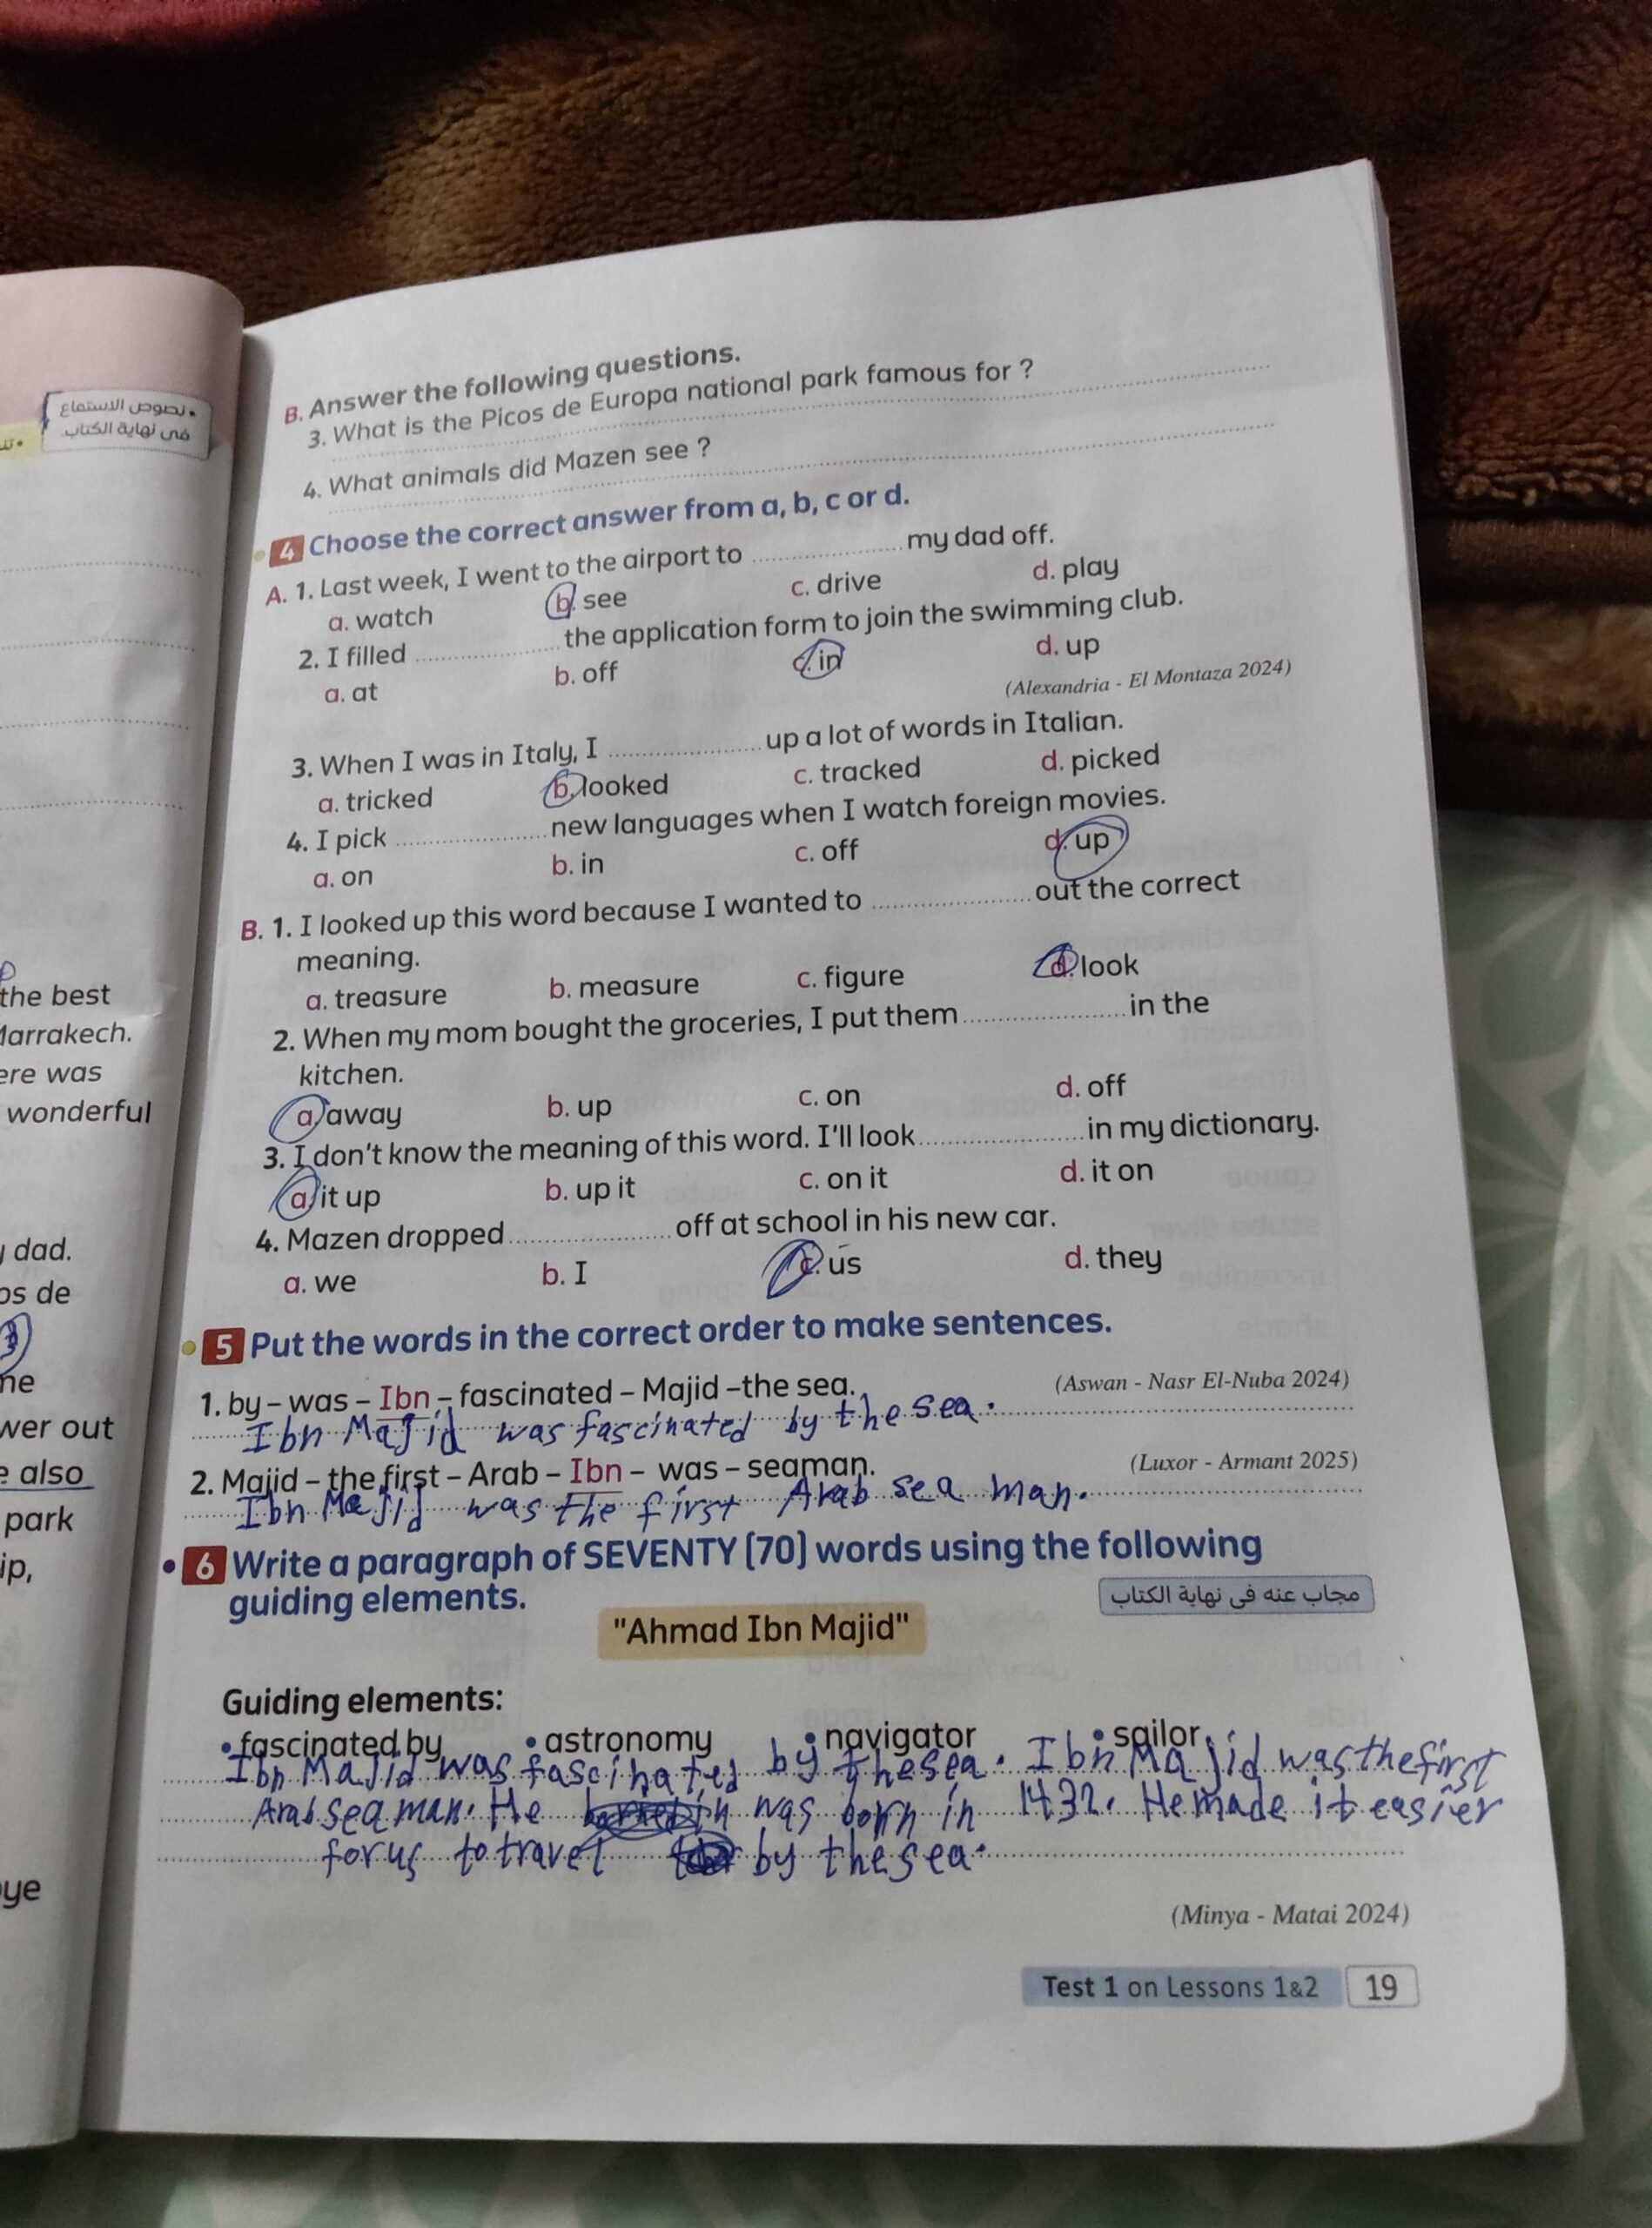 • نصوص الاستماع
فى نهاية الكتاب
the best
Marrakech.
ere was
wonderful
y dad.
os de
ne
wer out
e also
park
ip,
ye
B. Answer the following questions.
3. What is the Picos de Europa national park famous for ?
4. What animals did Mazen see ?
4 Choose the correct answer from a, b, c or d.
A. 1. Last week, I went to the airport to .................... my dad off.
a. watch b. see c. drive d. play
2. I filled .................... the application form to join the swimming club.
a. at b. off c. in d. up
(Alexandria - El Montaza 2024)
3. When I was in Italy, I .................... up a lot of words in Italian.
a. tricked b. looked c. tracked d. picked
4. I pick .................... new languages when I watch foreign movies.
a. on b. in c. off d. up
B. 1. I looked up this word because I wanted to .................... out the correct
meaning.
a. treasure b. measure c. figure d. look
2. When my mom bought the groceries, I put them .................... in the
kitchen.
a. away b. up c. on d. off
3. I don't know the meaning of this word. I'll look .................... in my dictionary.
a. it up b. up it c. on it d. it on
4. Mazen dropped .................... off at school in his new car.
a. we b. I c. us d. they
5 Put the words in the correct order to make sentences.
1. by – was – Ibn – fascinated – Majid –the sea. (Aswan - Nasr El-Nuba 2024)
Ibn Majid was fascinated by the sea.
2. Majid – the first – Arab – Ibn – was – seaman. (Luxor - Armant 2025)
Ibn Majid was the first Arab sea man.
6 Write a paragraph of SEVENTY (70) words using the following
guiding elements. مجاب عنه فى نهاية الكتاب
"Ahmad Ibn Majid"
Guiding elements:
• fascinated by • astronomy • navigator • sailor
Ibn Majid was fascinated by the sea. Ibn Majid was the first
Arab sea man. He was born in 1432. He made it easier
for us to travel by the sea.
(Minya - Matai 2024)
Test 1 on Lessons 1&2 19